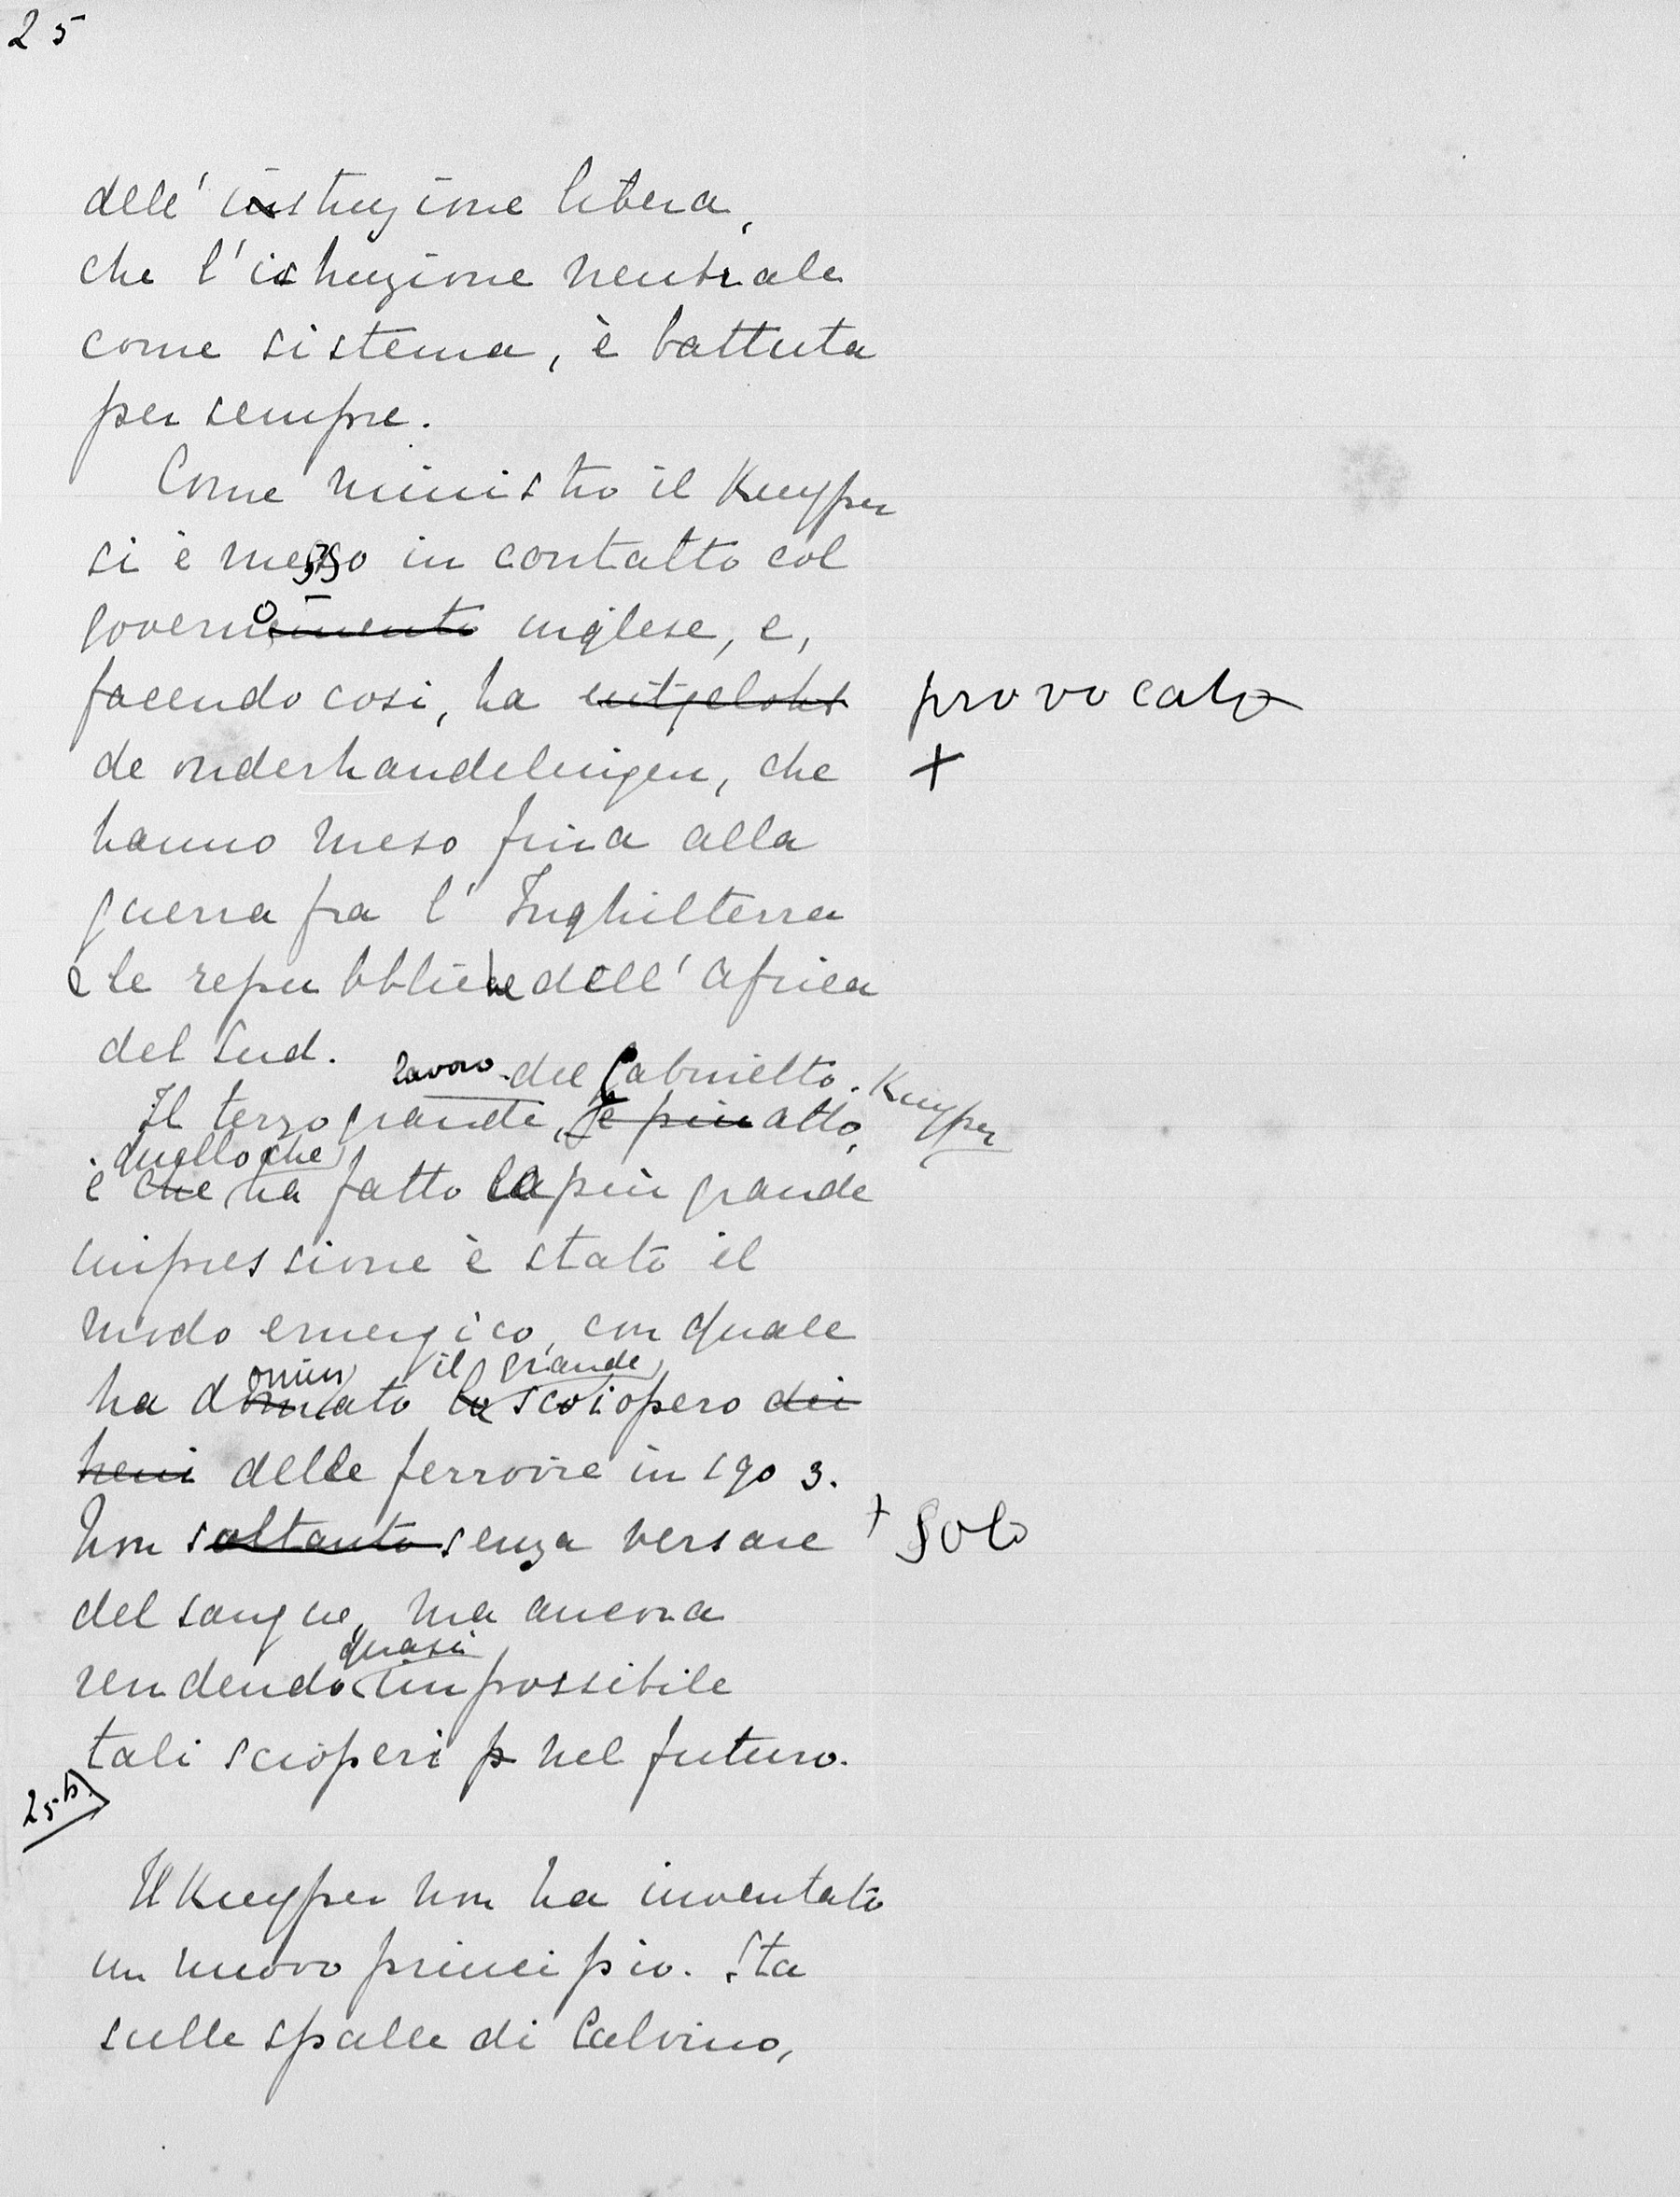 25
dell'istruzione libera,
che l'istruzione neutrale
come sistema, è battuta
per sempre.
Come ministro il Kuyper
si è messo in contatto col
governo inglese, e,
facendo cosi, ha uitgelokt provocato
de onderhandelingen, che +
hanno meso fina alla
guerra fra l'Inghilterra
e le repubbliche dell'Africa
del Sud.
lavoro del Gabinetto Kuyper
Il terzo grande, atto,
quello che
è che ha fatto la più grande
impressione è stato il
modo energico, con quale
omin il grande
ha domato lo scoiopero dei
treni delle ferrovie in 1903.
Non soltanto senza versare + solo
del sangue, ma ancora
quasi
rendendo impossibile
tali scioperi p nel futuro.
25b
Il Kuyper non ha inventato
un nuovo principio. Sta
sulle spalle di Calvino,